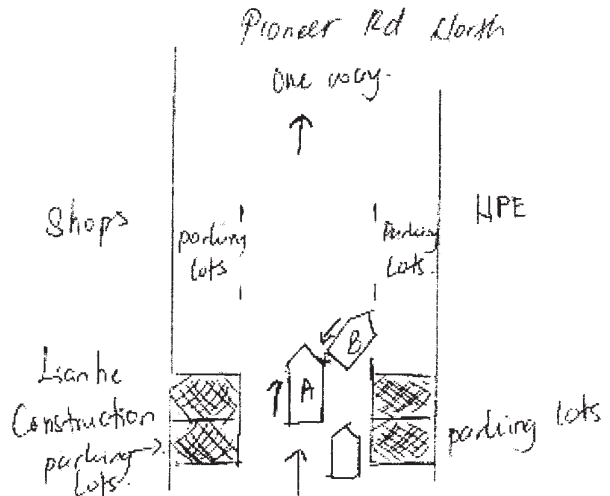 Pioneer Rd North
one way.
Shops
parking
lots
Parking
Lots.
HPE
B
A
Lianhe
Construction
parking
lots.
parking lots